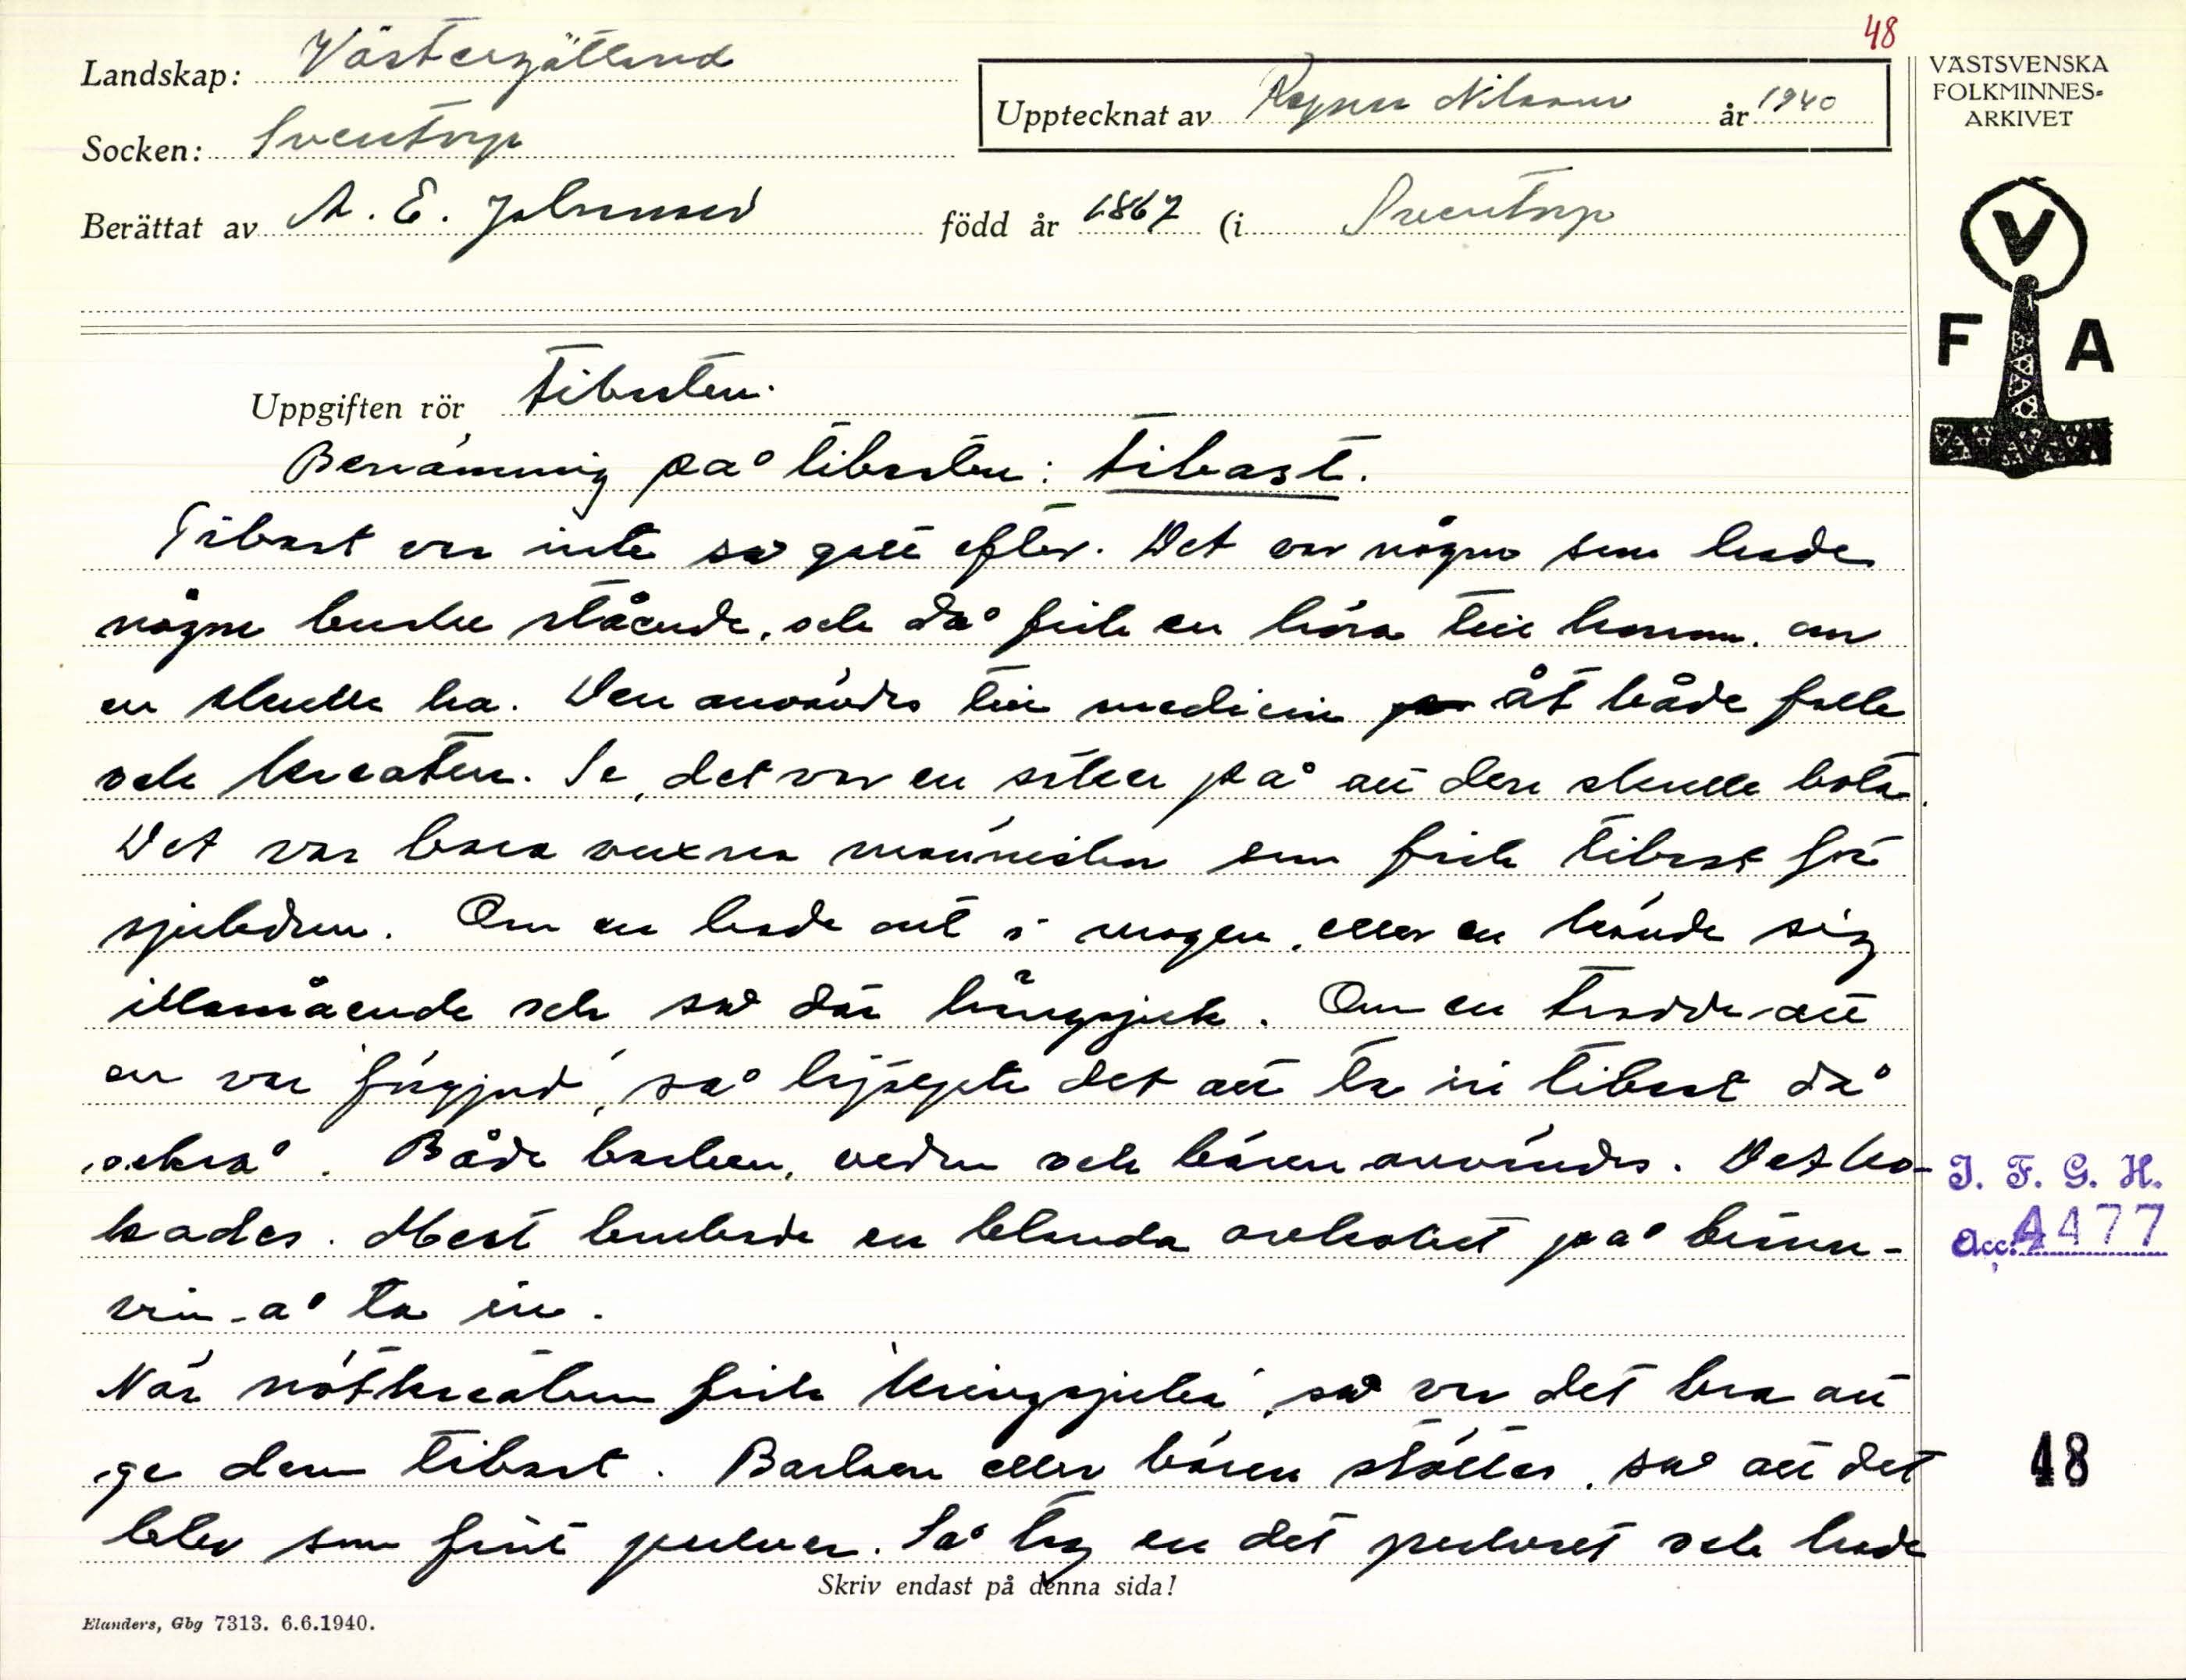 48
Landskap: Västergötland
Upptecknat av Ragnar Nilsson år 1940
VÄSTSVENSKA
FOLKMINNES-
ARKIVET
Socken: Sventorp
Berättat av A. E. Johansson född år 1867 (i Sventorp
V
F A
Uppgiften rör tibasten.
Benämning på tibasten: tibast.
Tibast var inte så gott efter. Det var någre som hade
någre buske stående, och då fick en höra till honom, om
en skulle ha. Den användes till medicin åt både folk
och kreatur. Se, det var en säker på att den skulle bota.
Det var bara vuxna människor som fick tibast för
sjukdom. Om en hade ont i magen, eller en kände sig
illamående och så där långsjuk. Om en trodde att
en var 'förgjord', så hjälpte det att ta in tibast då
också. Både barken, veden och bären användes. Det ko-
kades. Mest brukade en blanda avkoket på bränn-
vin å ta in.
När nötkreaturen fick 'kringsjuka', så var det bra att
ge dem tibast. Barken eller bären stöttes, så att det
blev som fint pulver. Så tog en det pulvret och hade
J. F. G. H.
Acc. 4477
48
Skriv endast på denna sida!
Elanders, Gbg 7313. 6.6.1940.